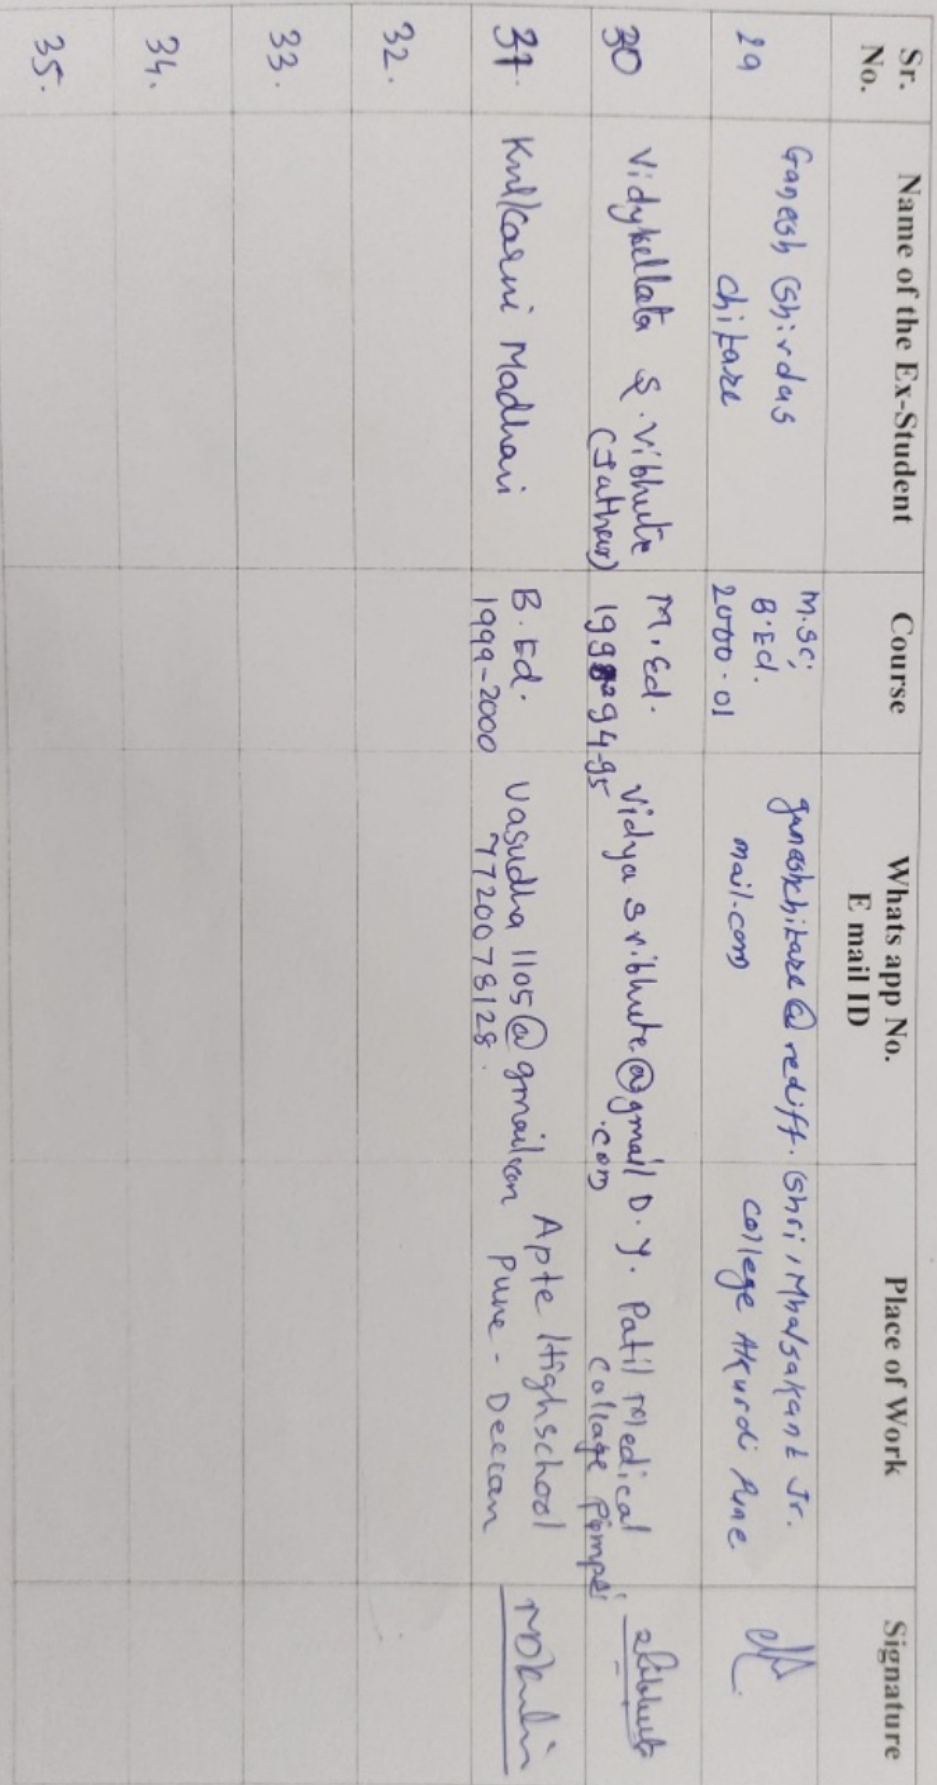 Sr. No. Name of the Ex-Student Course Whats app No. E mail ID Place of Work Signature
29 Ganesh Shirdas chitare M.Sc; B.Ed. 2000-01 ganeshchitare@rediff.mail.com Shri Mhalsakant Jr. college Akurdi Pune
30 Vidykellata S. Vibhute (Jathar) M.Ed. 94-95 Vidyasvibhute@gmail.com D.Y. Patil medical collage Pimpri
31. Kulkarni Madhavi B.Ed. 1999-2000 Vasudha1105@gmail.com 7720078128. Apte Highschool Pune - Deccan
32.
33.
34.
35.